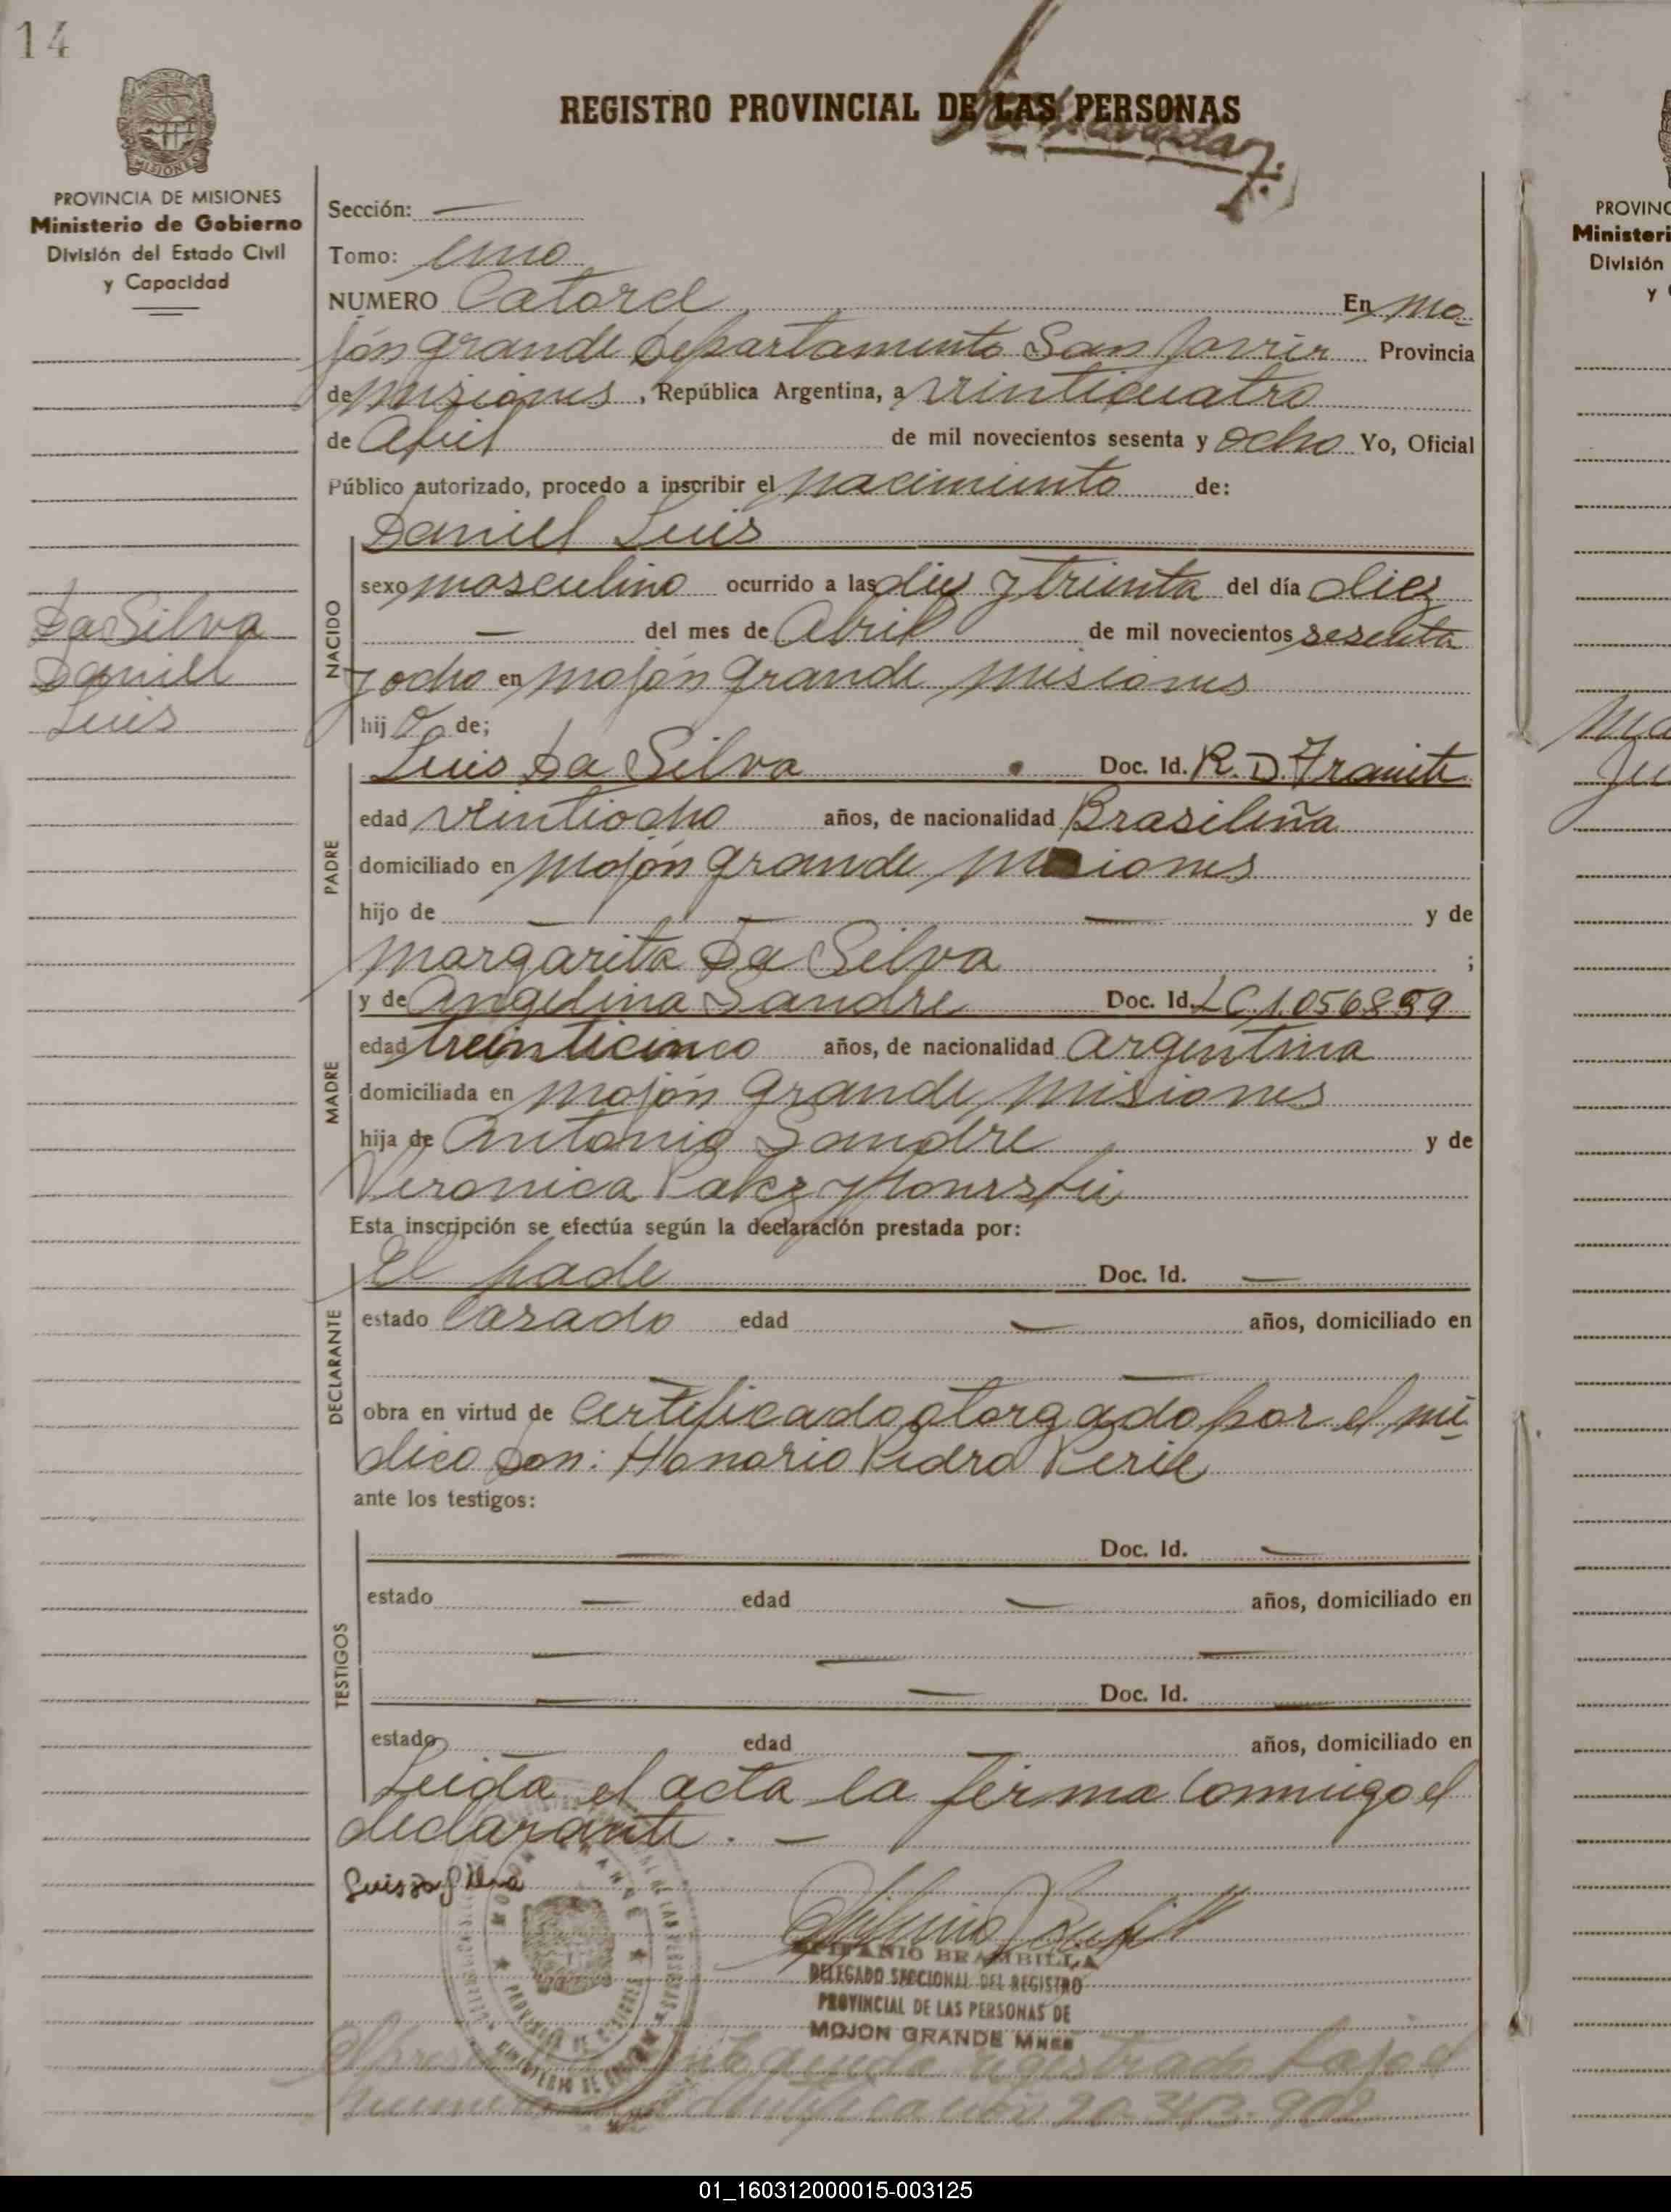 14
MISIONES
PROVINCIA DE MISIONES
Ministerio de Gobierno
División del Estado Civil
y Capacidad
Da Silva
Daniel
Luis
REGISTRO PROVINCIAL DE LAS PERSONAS
Sección: —
Tomo: uno
NUMERO Catorce En Mo-
jón grande Departamento San Javier Provincia
de Misiones, República Argentina, a veinticuatro
de Abril de mil novecientos sesenta y ocho Yo, Oficial
Público autorizado, procedo a inscribir el nacimiento de:
Daniel Luis
NACIDO
sexo masculino ocurrido a las diez y treinta del día diez
— del mes de Abril de mil novecientos sesenta
y ocho en mojón grande misiones
hijo de;
Luis Da Silva Doc. Id. R. D. Tramite
PADRE
edad veintiocho años, de nacionalidad Brasileña
domiciliado en mojón grande misiones
hijo de — — — y de
Margarita Da Silva ;
y de Angelina Sandre Doc. Id. LC.1.056859
MADRE
edad treinticinco años, de nacionalidad argentina
domiciliada en mojón grande misiones
hija de Antonio Sandre y de
Veronica
Esta inscripción se efectúa según la declaración prestada por:
El pade Doc. Id. —
DECLARANTE
estado Casado edad — años, domiciliado en
— —
obra en virtud de Certificado otorgado por el mé-
dico Don: Honorio Pedro
ante los testigos:
TESTIGOS
— Doc. Id. —
estado — edad — años, domiciliado en
— — —
— — Doc. Id. —
estado edad — años, domiciliado en
Leida el acta la firma conmigo el
declarante. —
Luis Da Silva
EPIFANIO BRAMBILLA
DELEGADO SECCIONAL DEL REGISTRO
PROVINCIAL DE LAS PERSONAS DE
MOJON GRANDE MNES
registrado bajo el
identificación 20.343.902
PROVINC
Ministeri
División
y
01_160312000015-003125